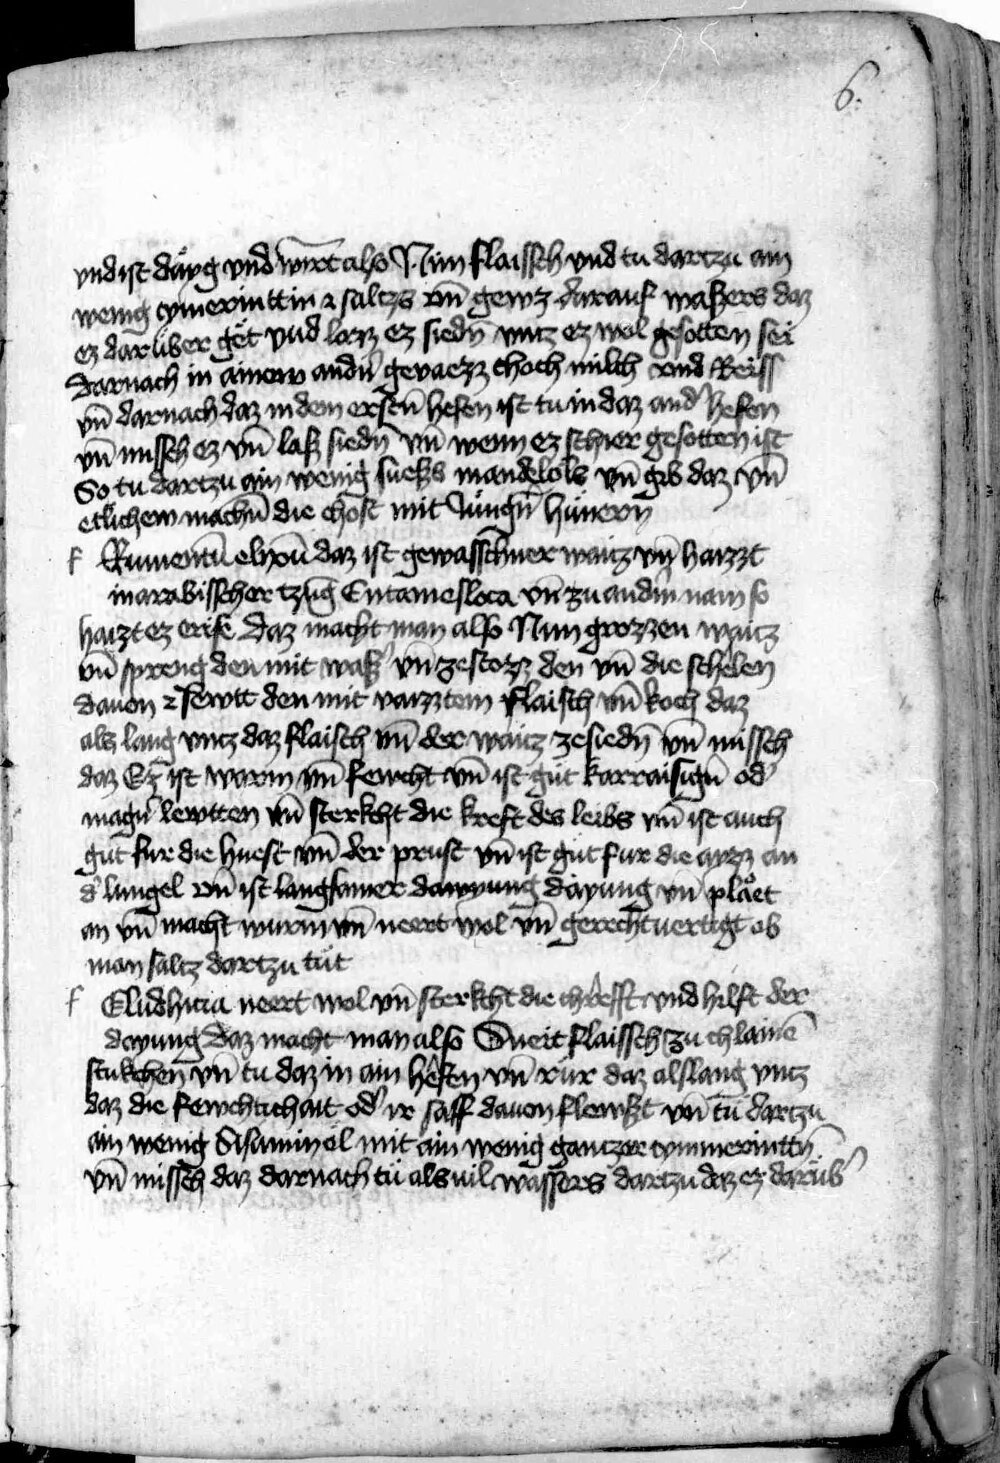 6.
vnd ist däyg vnd wirt also Nim flaissch vnd tu dartzu ain
wenig cymerinttin ⁊ saltzs vn̄ gewz darauf waszers daz
ez darüber get vnd lozz ez siedn̄ vntz ez wol gesotten sei
Darnach in ainem andn̄ gevaezz choch milch vnd Reiss
vn̄ darnach daz in dem erstn̄ hefen ist tu in daz and' hefen
vn̄ missch ez vn̄ lasz siedn̄ vn̄ wenn ez schier gesotten ist
So tu dartzu ain wenig suezs mandelöls vn̄ gib daz vn̄
etlichew machn̄ die chost mit Jungn̄ hünern
f Rumentū elixū daz ist gewasschner waitz vn̄ haizzt
in arabisscher tzūg Entamesloca vn̄ zu andm̄ nam so
haizt ez erise Daz macht man also Nim grozzen waitz
vn̄ spreng den mit wasz' vn̄ zestozz den vn̄ die schelen
dauon ⁊ sewtt den mit vaizztem flaisch vn̄ koch daz
als lang vntz daz flaisch vn̄ der waitz zesiedn̄ vn̄ missch
daz Ez ist warm vn̄ fewcht vn̄ ist gut karraisign̄ od'
magn̄ lewtten vn̄ sterkcht die kreft des leibs vn̄ ist auch
gut fur die huest vn̄ der prust vn̄ ist gut fur die ayzz an
d' lungel vn̄ ist langsamer dawyung däyung vn̄ pläet
an vn̄ macht wurm vn̄ neert wol vn̄ gerechtuertigt ob
man saltz dartzu tut
f Eludhicia neert wol vn̄ sterkcht die chrefft vnd hilft der
dayung Daz macht man also Sneit flaissch zu chlainē
stukchen vn̄ tu daz in ain hefen vn̄ rür daz als lang vntz
daz die fewchtichait od' ir saff dauon flewszt vn̄ tu dartzu
ain wenig Sisaminöl mit ain wenig gantzer cymmerinttn̄
vn̄ missch daz darnach tu als vil wassers dartzu daz ez darüb'